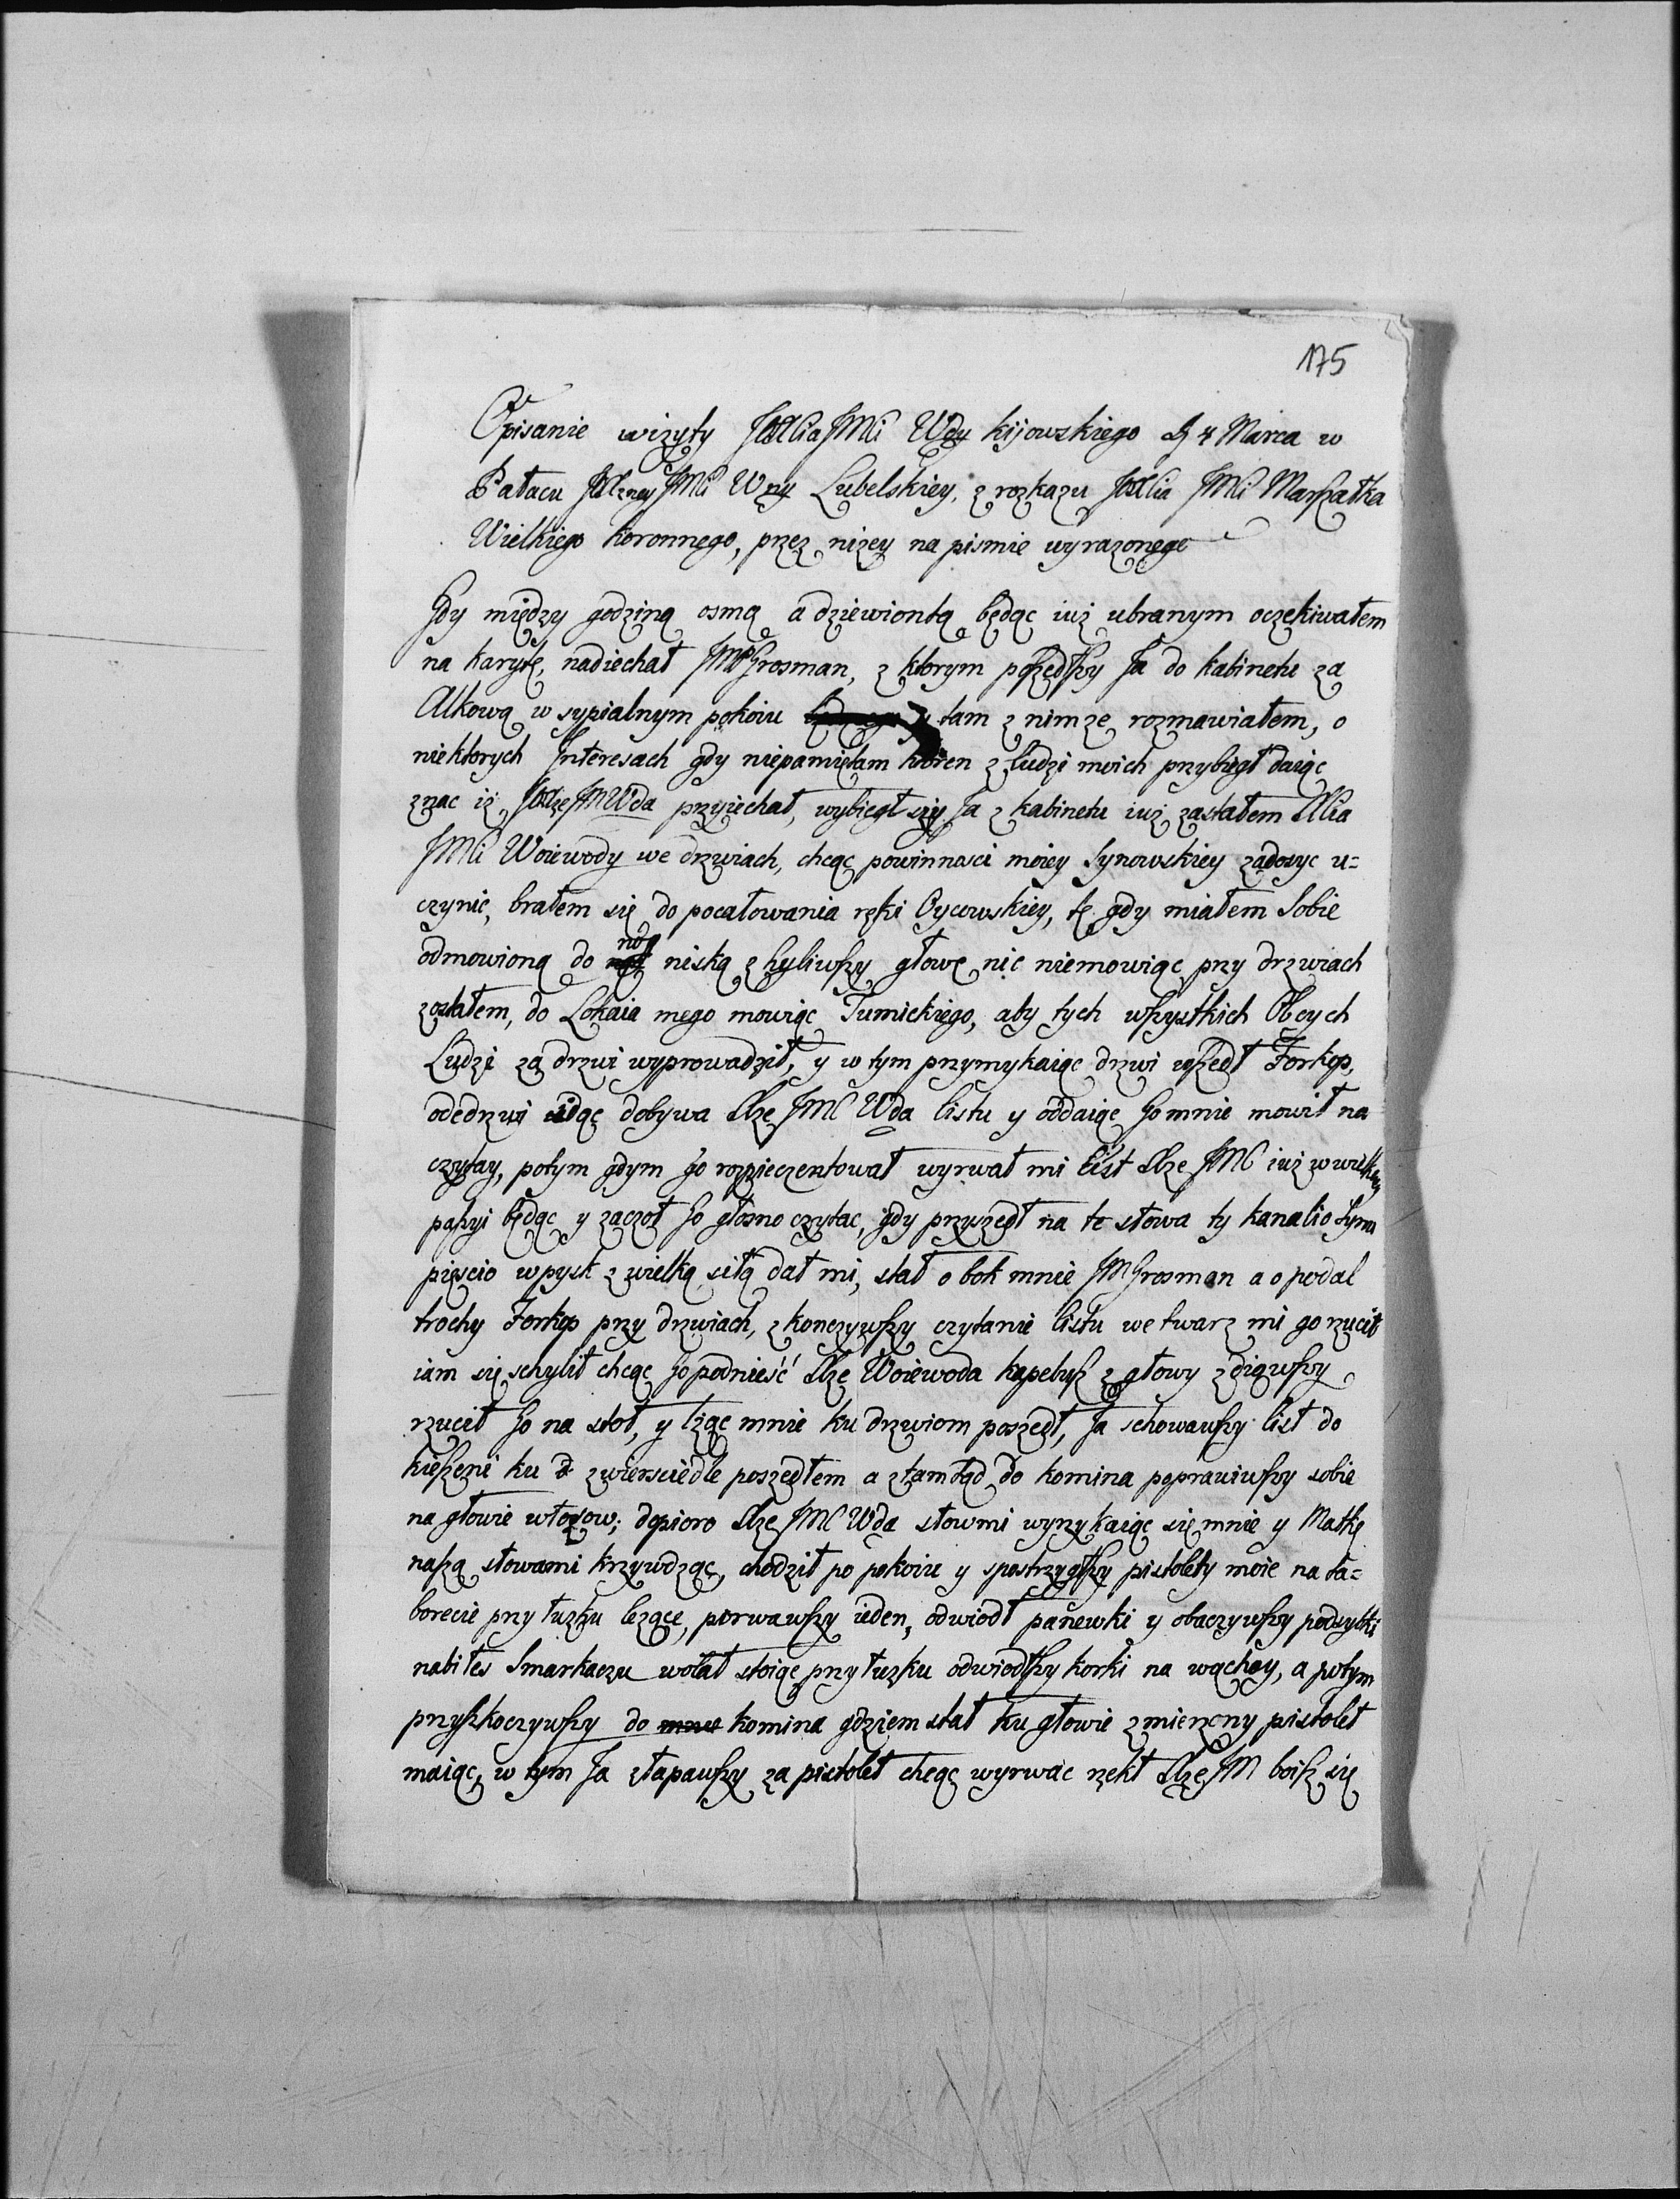 175
Opisanie wizyty JOXcia JMci Wdy kijowskiego D 4 Marca w
Pałacu JOXżney JMci Wny Lubelskiey, z rozkazu JOXcia JMci Marszałka
Wielkiego koronnego, przez niżey na pismie wyrazonego
Gdy między godziną osmą a dziewiontą będąc iuż ubranym oczekiwałem
na karytę, nadiechał JMP Grosman, z ktorym poszedszy Ja do kabinetu za
Alkową w sypialnym pokoiu y tam z nimże rozmawiałem, o
niektorych Interesach gdy niepamiętam ktoren z Ludzi moich przybiegł daiąc
znac iż JOXże JM Wda przyiechał, wybiegłszy Ja z kabinetu iuż zastałem Xcia
JMci Woiewody we drzwiach, chcąc powinnosci moiey Synowskiey zadosyc u=
czynic, brałem się do pocałowania ręki Oycowskiey, tę gdy miałem Sobie
odmowioną do nog niską zchyliwszy głowę nic niemowiąc przy drzwiach
zostałem, do Lokaia mego mowiąc Tumickiego, aby tych wszystkich Obcych
Ludzi za drzwi wyprowadził, y w tym przymykaiąc drzwi wszedł Forkop,
odedrzwi idąc dobywa Xże JMC Wda listu y oddaiąc Go mnie mowił na
czytay, potym gdym Go rozpieczentował wyrwał mi List Xże JMC iuż w wielkiey
paszyi będąc y zaczoł Go głosno czytac, gdy przyszedł na te słowa ty kanalio Synu
pięscio w pysk z wielką siłą dał mi, stał obok mnie JM Grosman a opodal
trochy Forkop przy drzwiach, zkonczywszy czytanie listu we twarz mi go rzucił
iam się schylił chcąc Go podnieść Xże Woiewoda kapelusz z głowy zdiąwszy
rzucił Go na stoł, y lżąc mnie ku drzwiom poszedł, Ja schowawszy list do
kieszeni ku zwierściedle poszedłem a ztamtąd do komina poprawiwszy sobie
na głowie włosow; dopioro Xże JMC Wda słowmi wyrzykaiąc się mnie y Matkę
naszą słowami krzywdząc, chodził po pokoiu y spostrzygłszy pistolety moie na ta=
borecie przy łuzku leżące, porwawszy ieden, odwiodł panewki y obaczywszy podsypki
nabiłes Smarkaczu wołał stoiąc przy łuzku odwiodszy korki na wąchay, a potym
przyszkoczywszy do komina gdziem stał ku głowie zmierzony pistolet
maiąc, w tym Ja złapawszy za pistolet chcąc wyrwac rzekł Xże JM boisz się